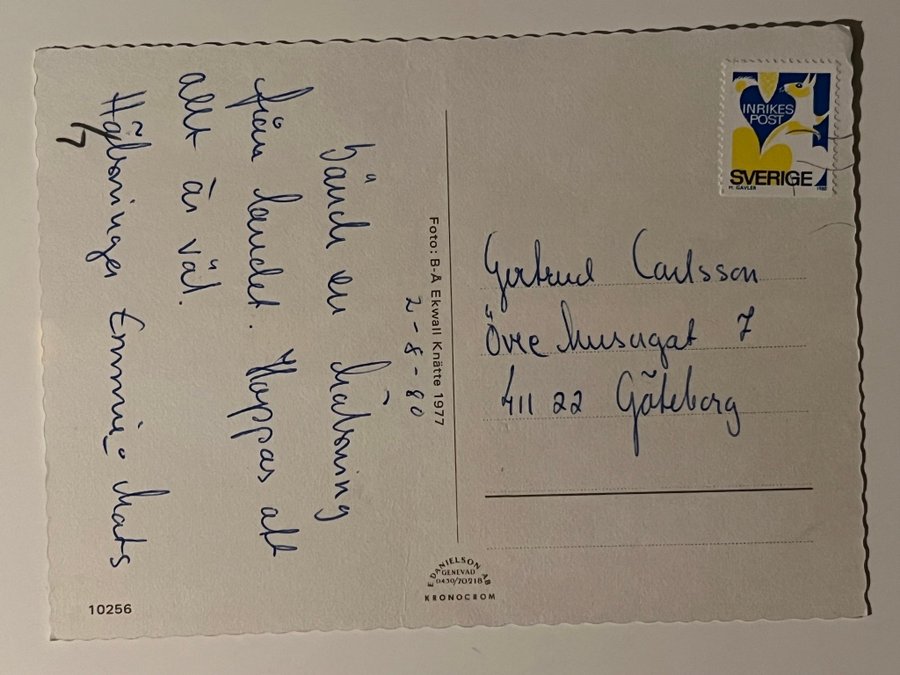 Sänder en hälsning
från landet. Hoppas att
allt är väl.
Hälsningar Emmie o Mats
2-8-80
Foto: B-Å Ekwall Knätte 1977
INRIKES
POST
SVERIGE
M. GAVLER 1980
Gertrud Carlsson
Övre Husargat 7
411 22 Göteborg
E. DANIELSON AB
GENEVAD
0430/70218
KRONOCROM
10256